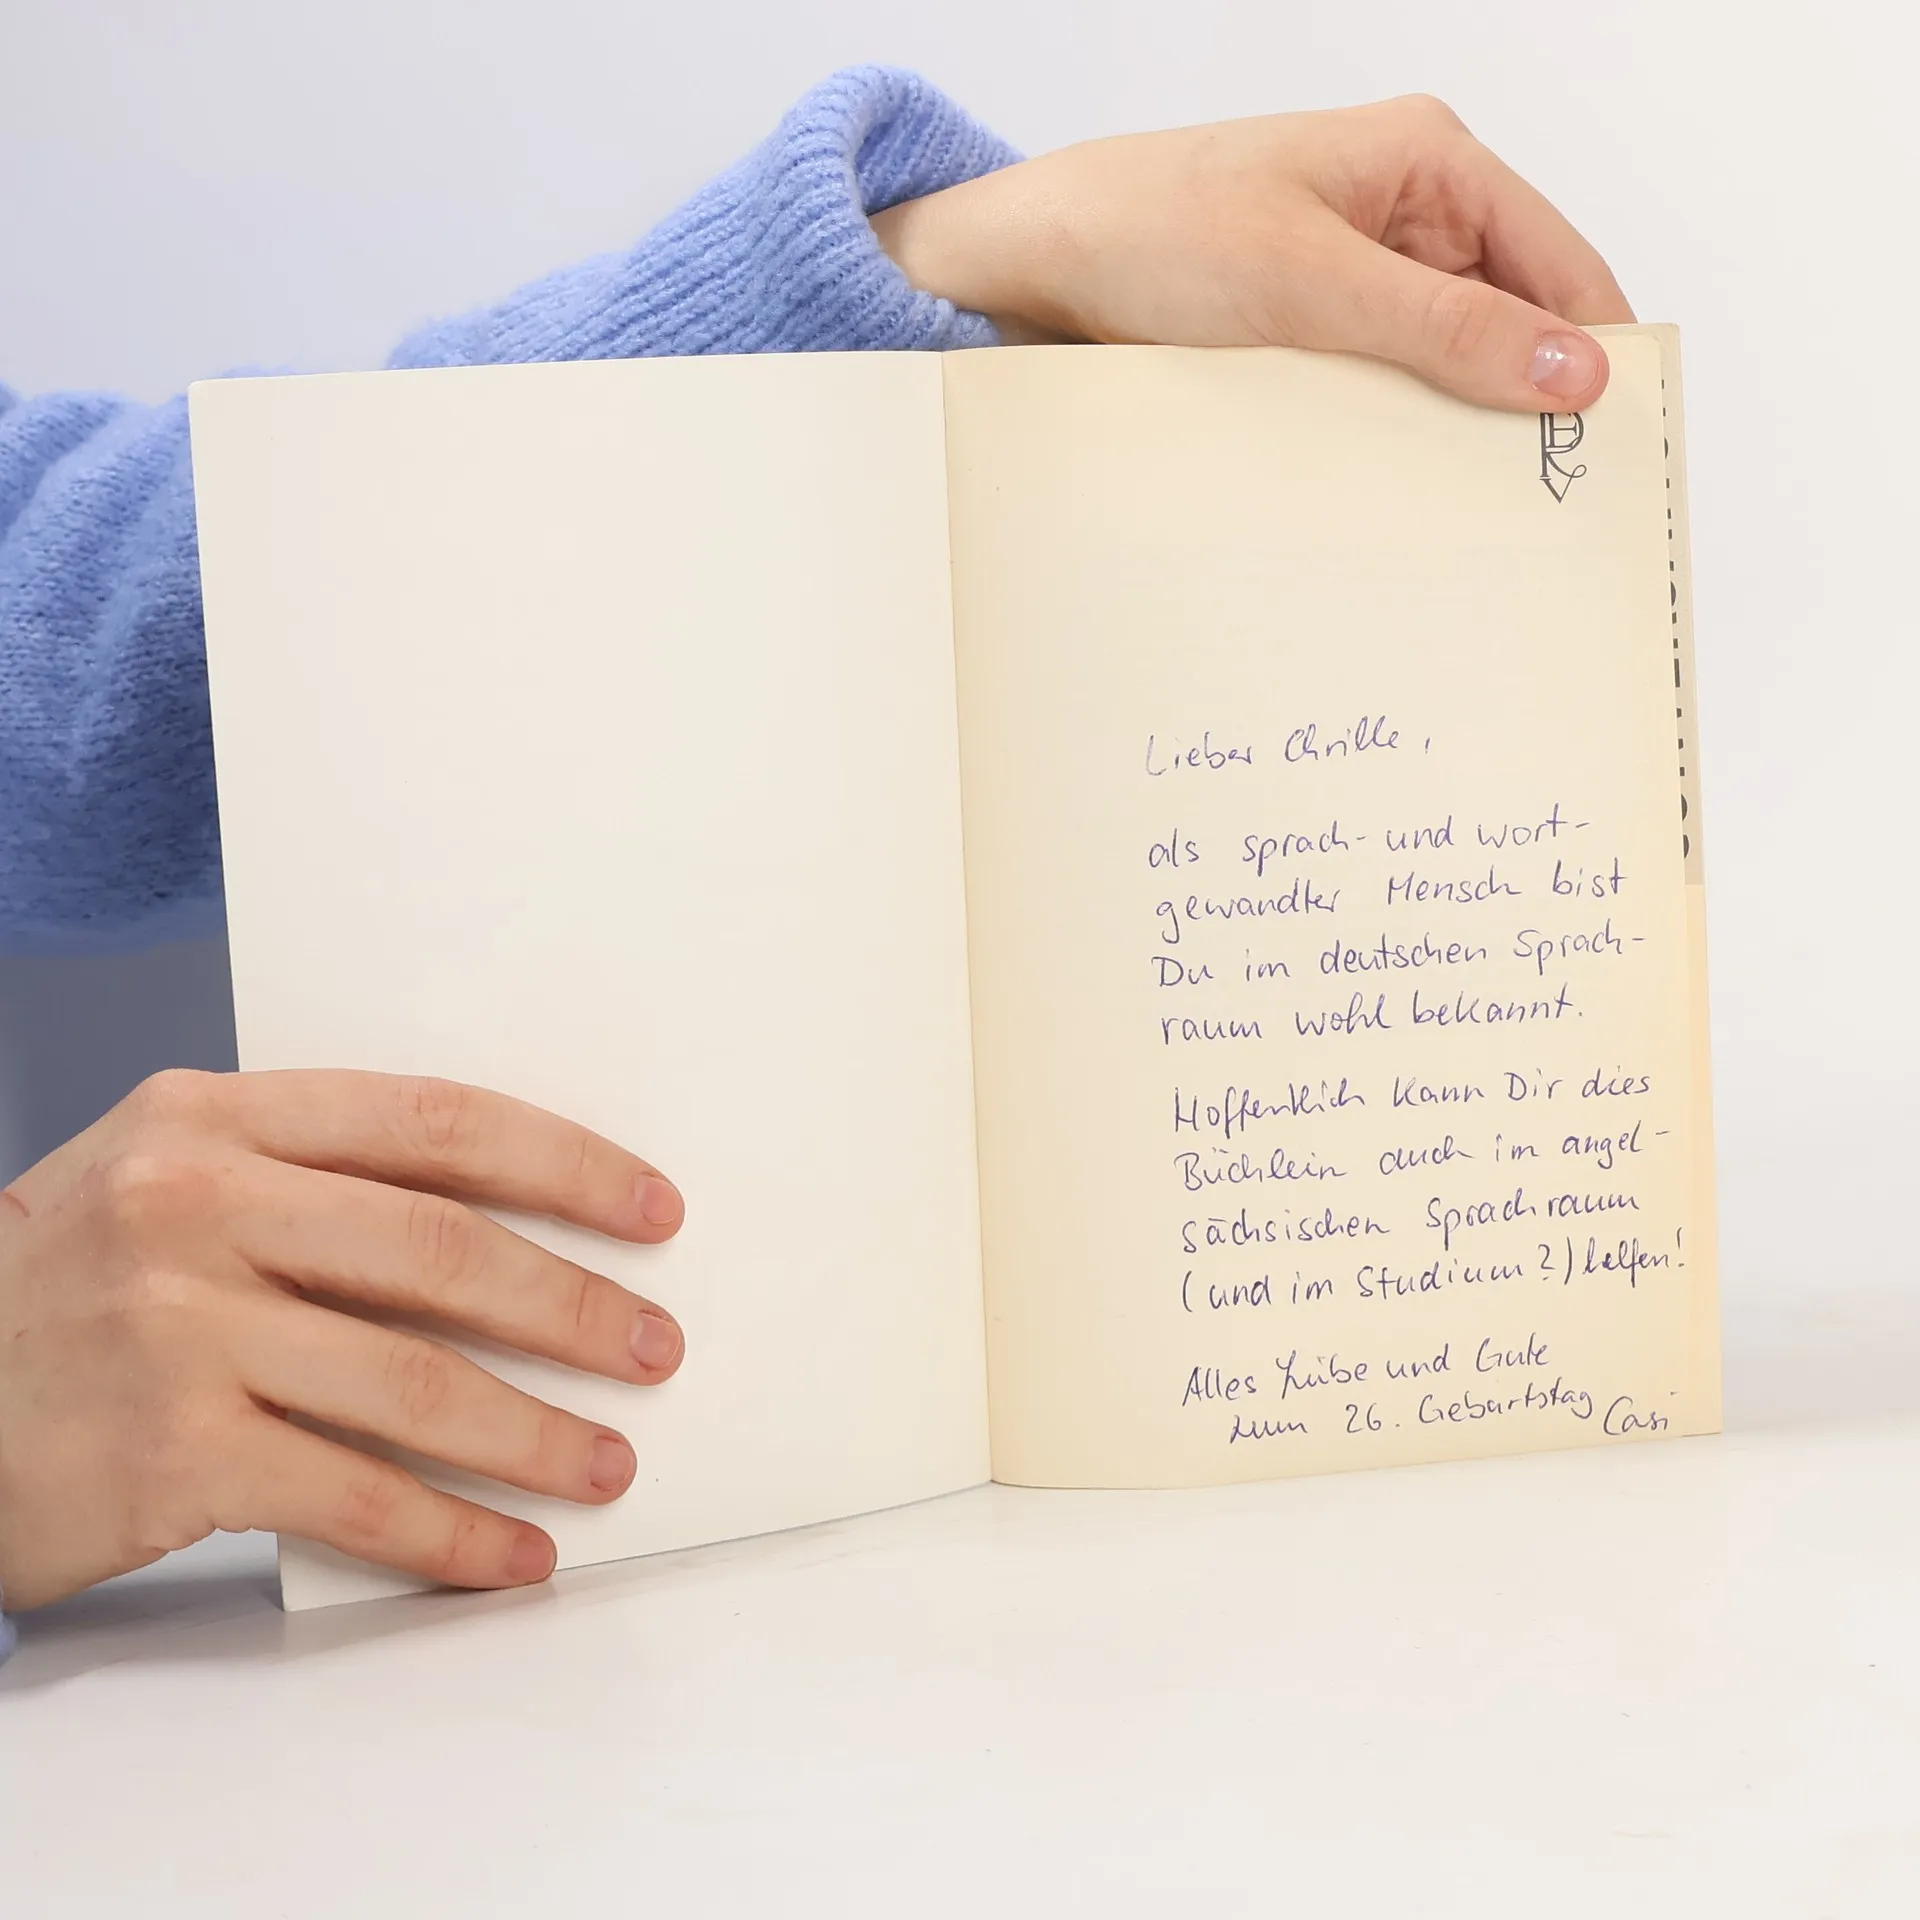 Lieber Chrille,
als sprach- und wort-
gewandter Mensch bist
Du im deutschen Sprach-
raum wohl bekannt.
Hoffentlich kann Dir dies
Büchlein auch im angel-
sächsischen Sprachraum
(und im Studium?) helfen!
Alles Liebe und Gute
zum 26. Geburtstag Casi